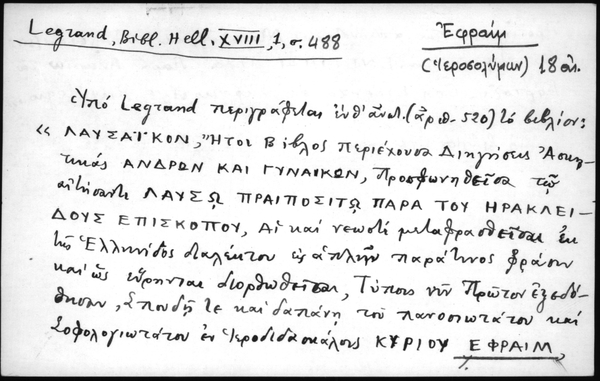 Legrand, Bibl. Hell. XVIII, 1, σ. 488
Ἐφραίμ
(Ἱεροσολύμων) 18 αἰ.
Ὑπό Legrand περιγράφεται ἐνθ' ἀνωτ. (ἀριθ. 520) τό βιβλίον:
« ΛΑΥΣΑΪΚΟΝ, Ἤτοι Βίβλος περιέχουσα Διηγήσεις Ἀσκη-
τικάς ΑΝΔΡΩΝ ΚΑΙ ΓΥΝΑΙΚΩΝ, Προσφωνηθεῖσα τῷ
αἰτήσαντι ΛΑΥΣῼ ΠΡΑΙΠΟΣΙΤῼ ΠΑΡΑ ΤΟΥ ΗΡΑΚΛΕΙ-
ΔΟΥΣ ΕΠΙΣΚΟΠΟΥ, Αἵ καί νεωστί μεταφρασθεῖσαι ἐκ
τῆς Ἑλληνίδος διαλέκτου εἰς ἁπλῆν παρά τινος φράσιν
καί ὡς εὕρηνται διορθωθεῖσαι, Τύποις νῦν Πρῶτον ἐξεδό-
θησαν, Σπουδῇ τε καί δαπάνῃ τοῦ πανοσιωτάτου καί
Σοφολογιωτάτου ἐν Ἱεροδιδασκάλοις ΚΥΡΙΟΥ ΕΦΡΑΙΜ